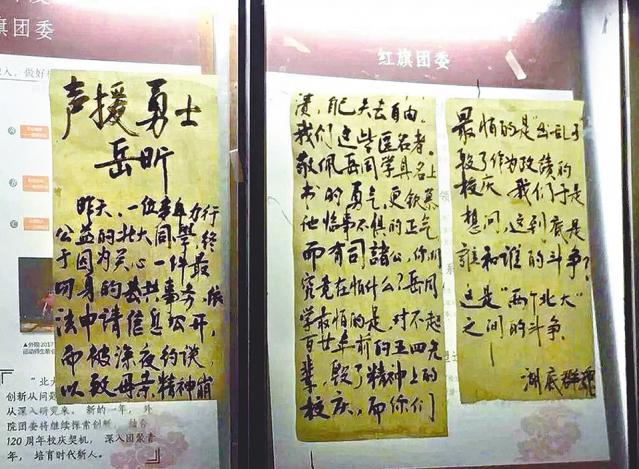 旗团委
声援勇士
岳昕
昨天,一位常年力行
公益的北大同學,终
于因为关心一件最
切身的公共事务,依
法申请信息公开,
而被深夜约谈
以致母亲精神崩
▲外院2017
"北大
从深入研究来。 新的一年, 外
院团委将继续探索创新, 结合
120 周年校庆契机, 深入团聚青
年, 培育时代新人。
红旗团委
溃,几失去自由。
我们这些匿名者。
敬佩岳同學具名上
书的勇气,更钦慕
他临事不惧的正气
而有司諸公,你们
究竟在怕什么?岳同
学最怕的是,对不起
百廿年前的五四先
辈,毁了精神上的
校庆,而你们
最怕的是"出乱子"
毁了作为政绩的
校庆。我们于是
想问,这到底是
谁和谁的斗争?
这是"两个北大"
之间的斗争。
湖底群魂